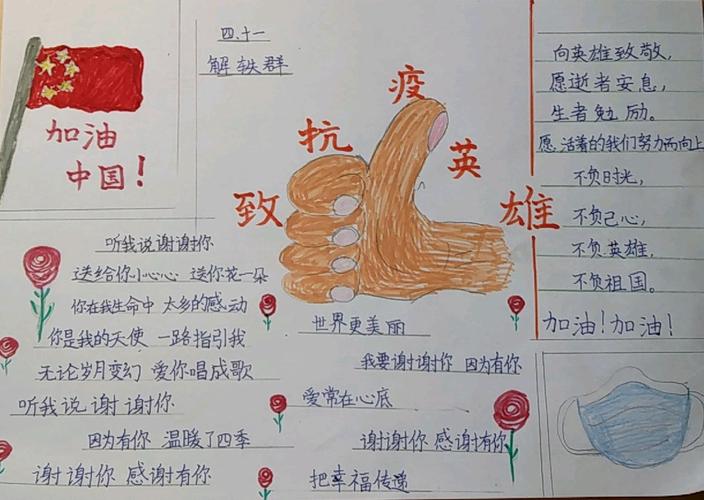 四、十一
解轶群
加油
中国！
致抗疫英雄
向英雄致敬，
愿逝者安息，
生者勉励。
愿活着的我们努力而向上
不负时光，
不负己心，
不负英雄，
不负祖国。
加油！加油！
听我说谢谢你
送给你小心心 送你花一朵
你在我生命中 太多的感动
你是我的天使 一路指引我
无论岁月变幻 爱你唱成歌
听我说谢谢你
因为有你 温暖了四季
谢谢你 感谢有你
世界更美丽
我要谢谢你 因为有你
爱常在心底
谢谢你 感谢有你
把幸福传递